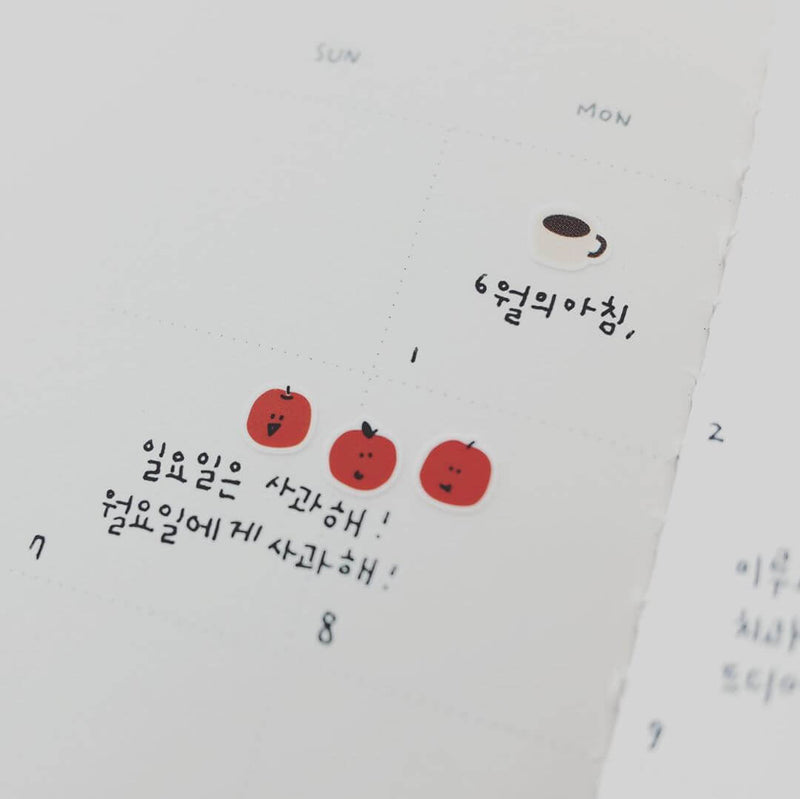 SUN
MON
6월의 아침,
1
2
일요일은 사과해!
월요일에게 사과해!
7
8
9